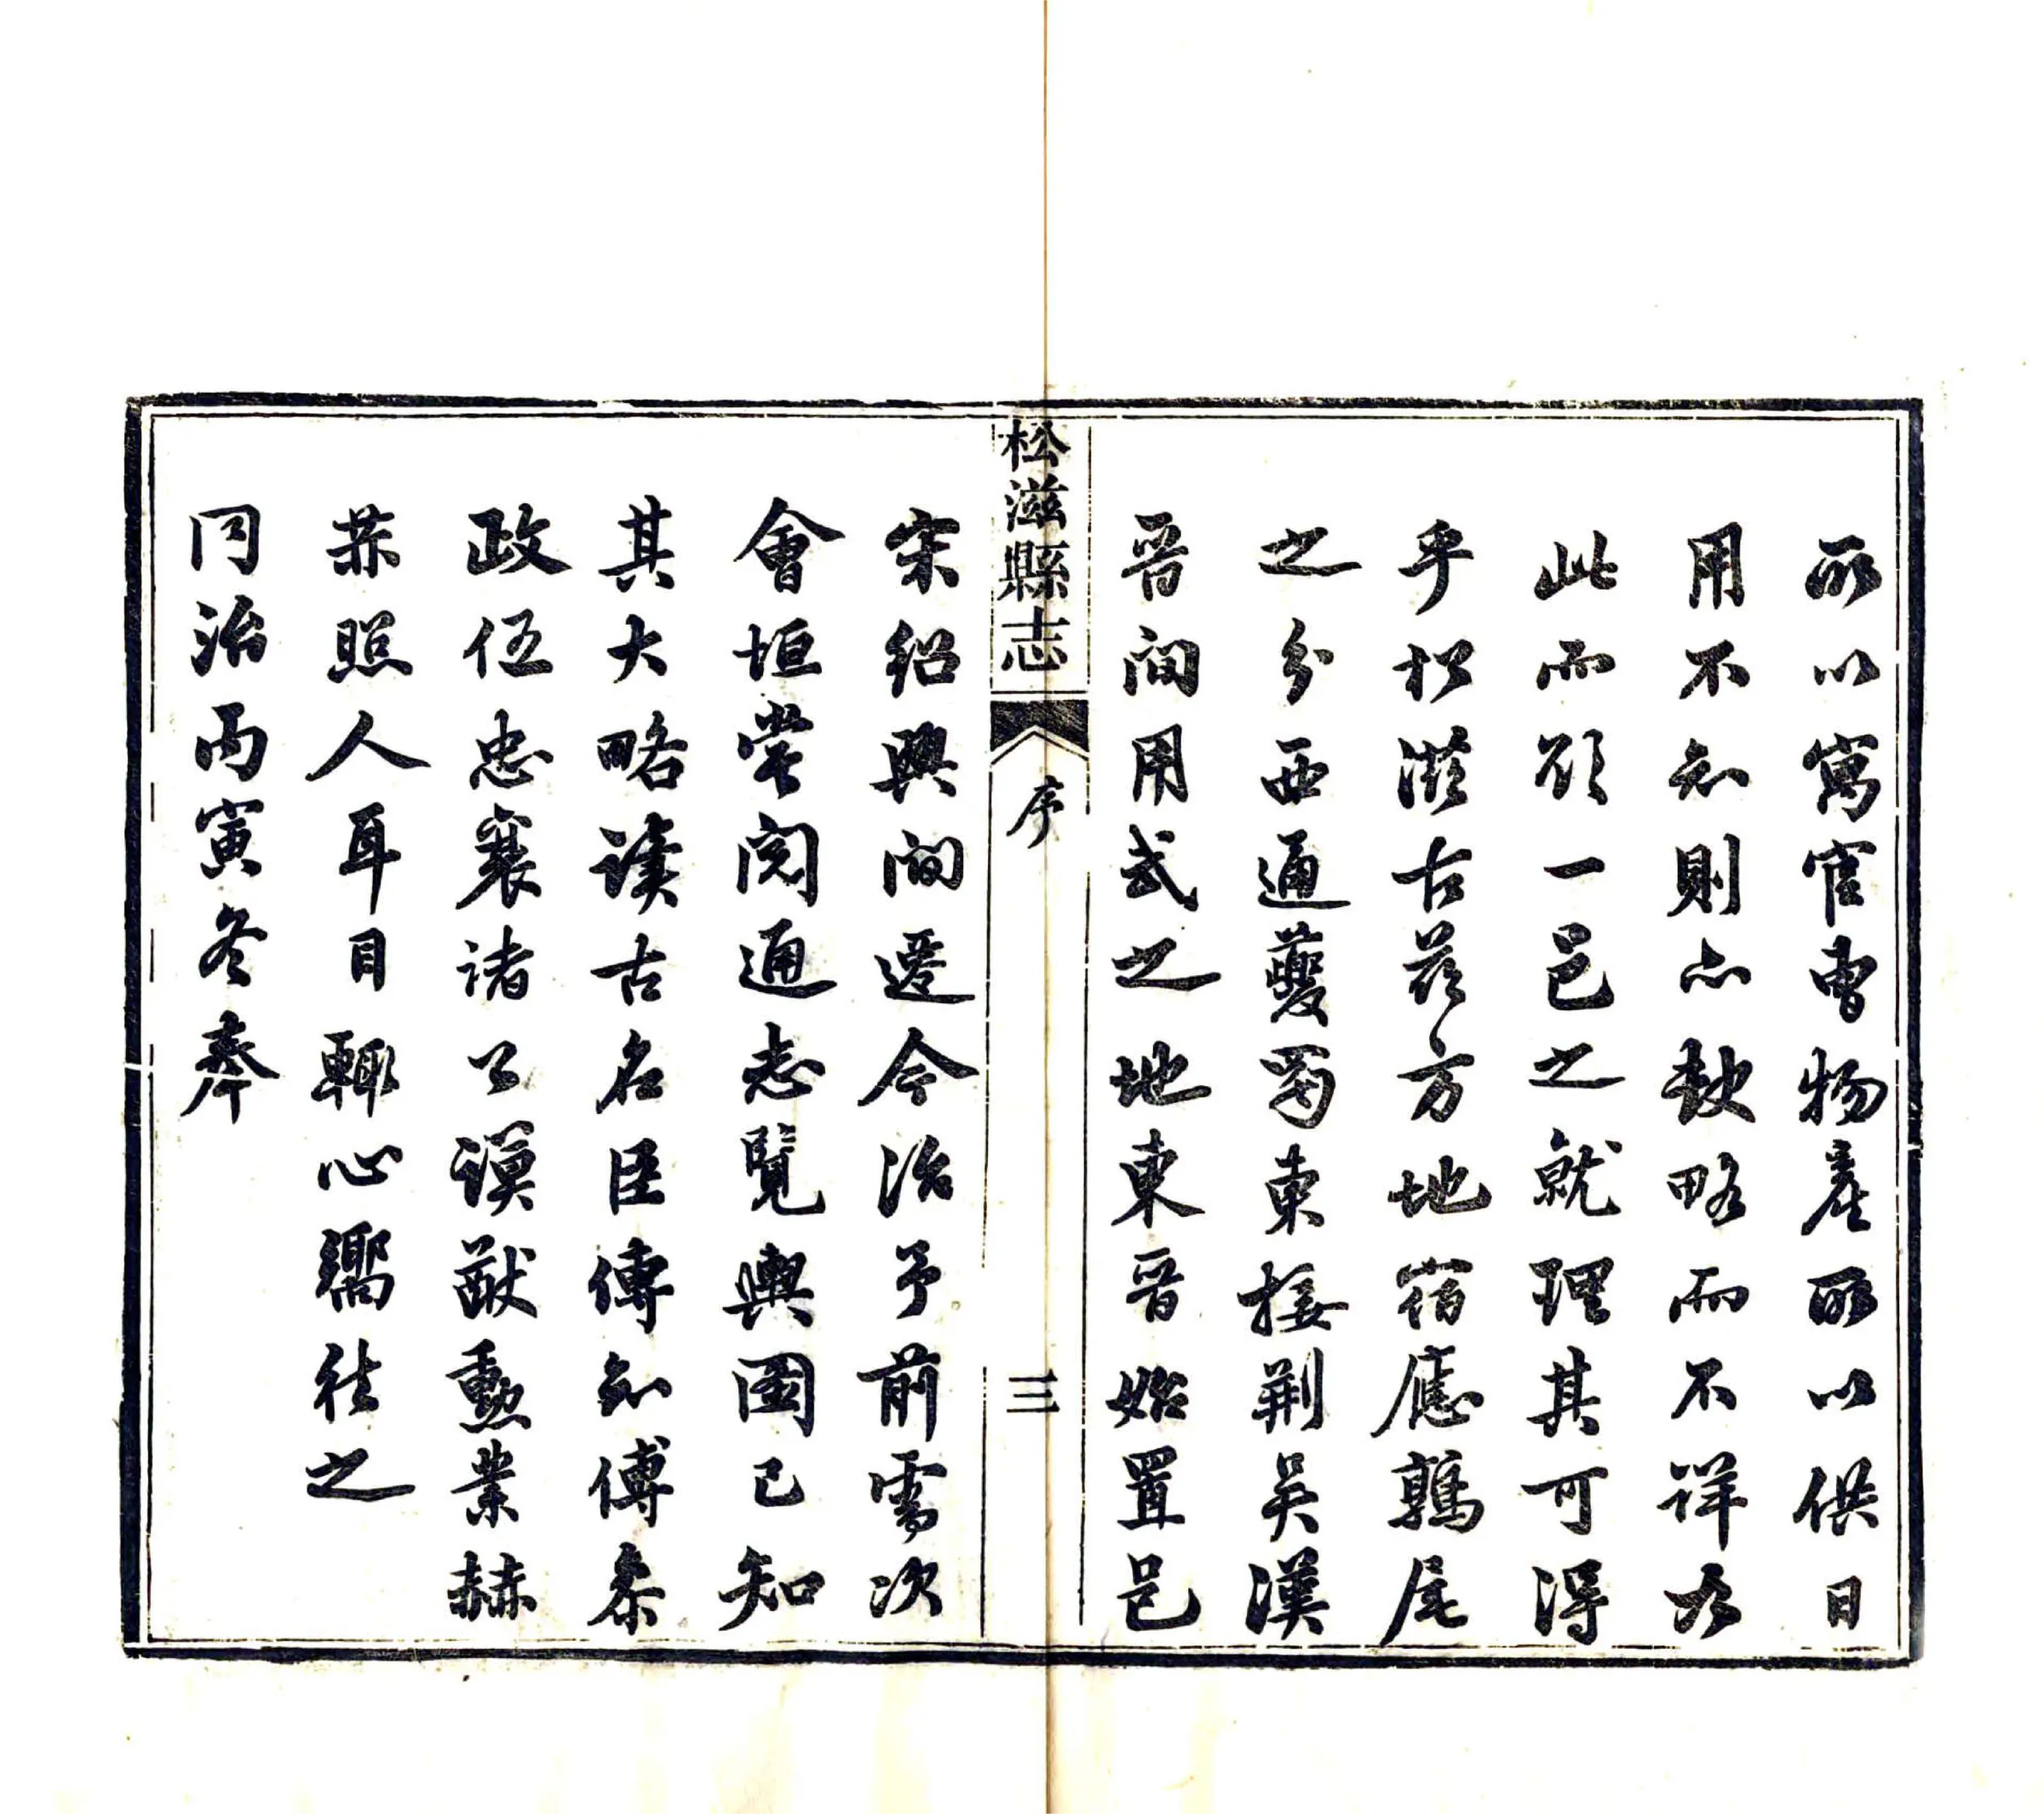 所以寓官曹物產所以供日
用不知則亦缺略而不詳若
此而欲一邑之就理其可得
乎松滋古茲方地宿應鶉尾
之分西通夔蜀東接荊吳漢
晉間用武之地東晉始置邑
松滋縣志
序
三
宋紹興間遷今治予前需次
會垣嘗閱通志覽輿圖已知
其大略讀古名臣傳知傅參
政伍忠襄諸公謨猷勳業赫
赫照人耳目輒心嚮往之
同治丙寅冬奉